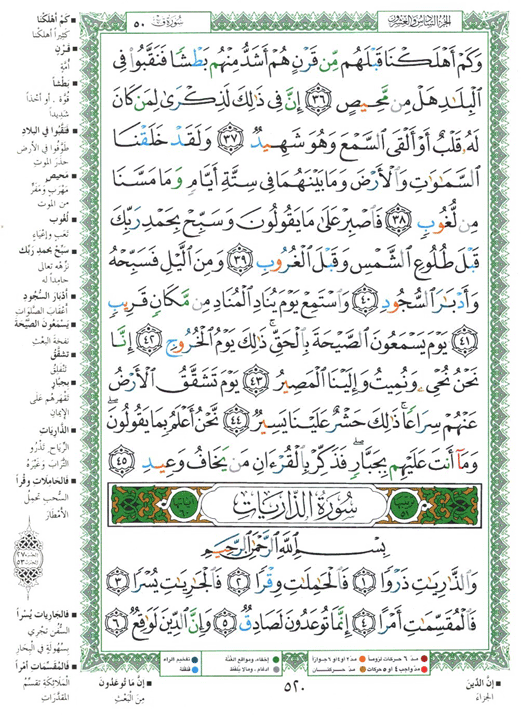 الجزء السادس والعشرون
سورة ق ٥٠
وَكَمْ أَهْلَكْنَا قَبْلَهُم مِّن قَرْنٍ هُمْ أَشَدُّ مِنْهُم بَطْشًا فَنَقَّبُوا۟ فِى
ٱلْبِلَٰدِ هَلْ مِن مَّحِيصٍ ٣٦ إِنَّ فِى ذَٰلِكَ لَذِكْرَىٰ لِمَن كَانَ
لَهُۥ قَلْبٌ أَوْ أَلْقَى ٱلسَّمْعَ وَهُوَ شَهِيدٌ ٣٧ وَلَقَدْ خَلَقْنَا
ٱلسَّمَٰوَٰتِ وَٱلْأَرْضَ وَمَا بَيْنَهُمَا فِى سِتَّةِ أَيَّامٍ وَمَا مَسَّنَا
مِن لُّغُوبٍ ٣٨ فَٱصْبِرْ عَلَىٰ مَا يَقُولُونَ وَسَبِّحْ بِحَمْدِ رَبِّكَ
قَبْلَ طُلُوعِ ٱلشَّمْسِ وَقَبْلَ ٱلْغُرُوبِ ٣٩ وَمِنَ ٱلَّيْلِ فَسَبِّحْهُ
وَأَدْبَٰرَ ٱلسُّجُودِ ٤٠ وَٱسْتَمِعْ يَوْمَ يُنَادِ ٱلْمُنَادِ مِن مَّكَانٍ قَرِيبٍ
٤١ يَوْمَ يَسْمَعُونَ ٱلصَّيْحَةَ بِٱلْحَقِّ ۚ ذَٰلِكَ يَوْمُ ٱلْخُرُوجِ ٤٢ إِنَّا
نَحْنُ نُحْىِۦ وَنُمِيتُ وَإِلَيْنَا ٱلْمَصِيرُ ٤٣ يَوْمَ تَشَقَّقُ ٱلْأَرْضُ
عَنْهُمْ سِرَاعًا ۚ ذَٰلِكَ حَشْرٌ عَلَيْنَا يَسِيرٌ ٤٤ نَّحْنُ أَعْلَمُ بِمَا يَقُولُونَ ۖ
وَمَآ أَنتَ عَلَيْهِم بِجَبَّارٍ ۖ فَذَكِّرْ بِٱلْقُرْءَانِ مَن يَخَافُ وَعِيدِ ٤٥
سُورَةُ الذَّارِيَات
بِسْمِ ٱللَّهِ ٱلرَّحْمَٰنِ ٱلرَّحِيمِ
وَٱلذَّٰرِيَٰتِ ذَرْوًا ١ فَٱلْحَٰمِلَٰتِ وِقْرًا ٢ فَٱلْجَٰرِيَٰتِ يُسْرًا ٣
فَٱلْمُقَسِّمَٰتِ أَمْرًا ٤ إِنَّمَا تُوعَدُونَ لَصَادِقٌ ٥ وَإِنَّ ٱلدِّينَ لَوَٰقِعٌ ٦
■ كَمْ أهْلَكْنا
كثيراً أهلكنا
■ قَرْنٍ
أُمَّةٍ
■ بَطْشاً
قُوَّة . أو أخذاً
شديداً
■ فنَقَّبُوا في البلادِ
طوَّفُوا في الأرضِ
حذَرَ الموتِ
■ مَحيصٍ
مَهْرَبٍ ومَفَرٍّ
من الموت
■ لُغُوب
تعبٍ وإعْيَاءٍ
■ سبِّحْ بحمدِ ربِّك
نزِّهْهُ تعالى
حامداً له
■ أدْبَارَ السُّجُودِ
أعْقابَ الصَّلَواتِ
■ يَسْمَعُونَ الصَّيْحَة
نفخة البَعْثِ
■ تشقَّقُ
تَنْفَلِقُ
■ بجبَّارٍ
تَقْهرهُم على
الإيمانِ
■ الذَّارِيَاتِ
الرِّياح. تَذْرُو
التُّرابَ وغيْرَهُ
■ فَالحَامِلاتِ وقْراً
السُّحبِ تحمِلُ
الأمْطَارَ
■ فَالجَارِياتِ يُسْراً
السُّفُن تجْري
بسُهُولةٍ في البِحَارِ
■ فَالمُقَسِّماتِ أمْراً
المَلائِكَةِ تقسِّمُ
المُقَدَّراتِ
■ إنَّ ما تُوعَدُونَ
مِنَ البَعْثِ
■ إنَّ الدِّينَ
الجَزَاءَ
مدّ ٦ حركات لزوماً
مدّ ٢ أو ٤ أو ٦ جوازاً
مدّ واجب ٤ أو ٥ حركات
مدّ حركتان
إخفاء، ومواقع الغُنَّة
إدغام ، ومالا يُلفَظ
تفخيم الراء
قلقلة
٥٢٠